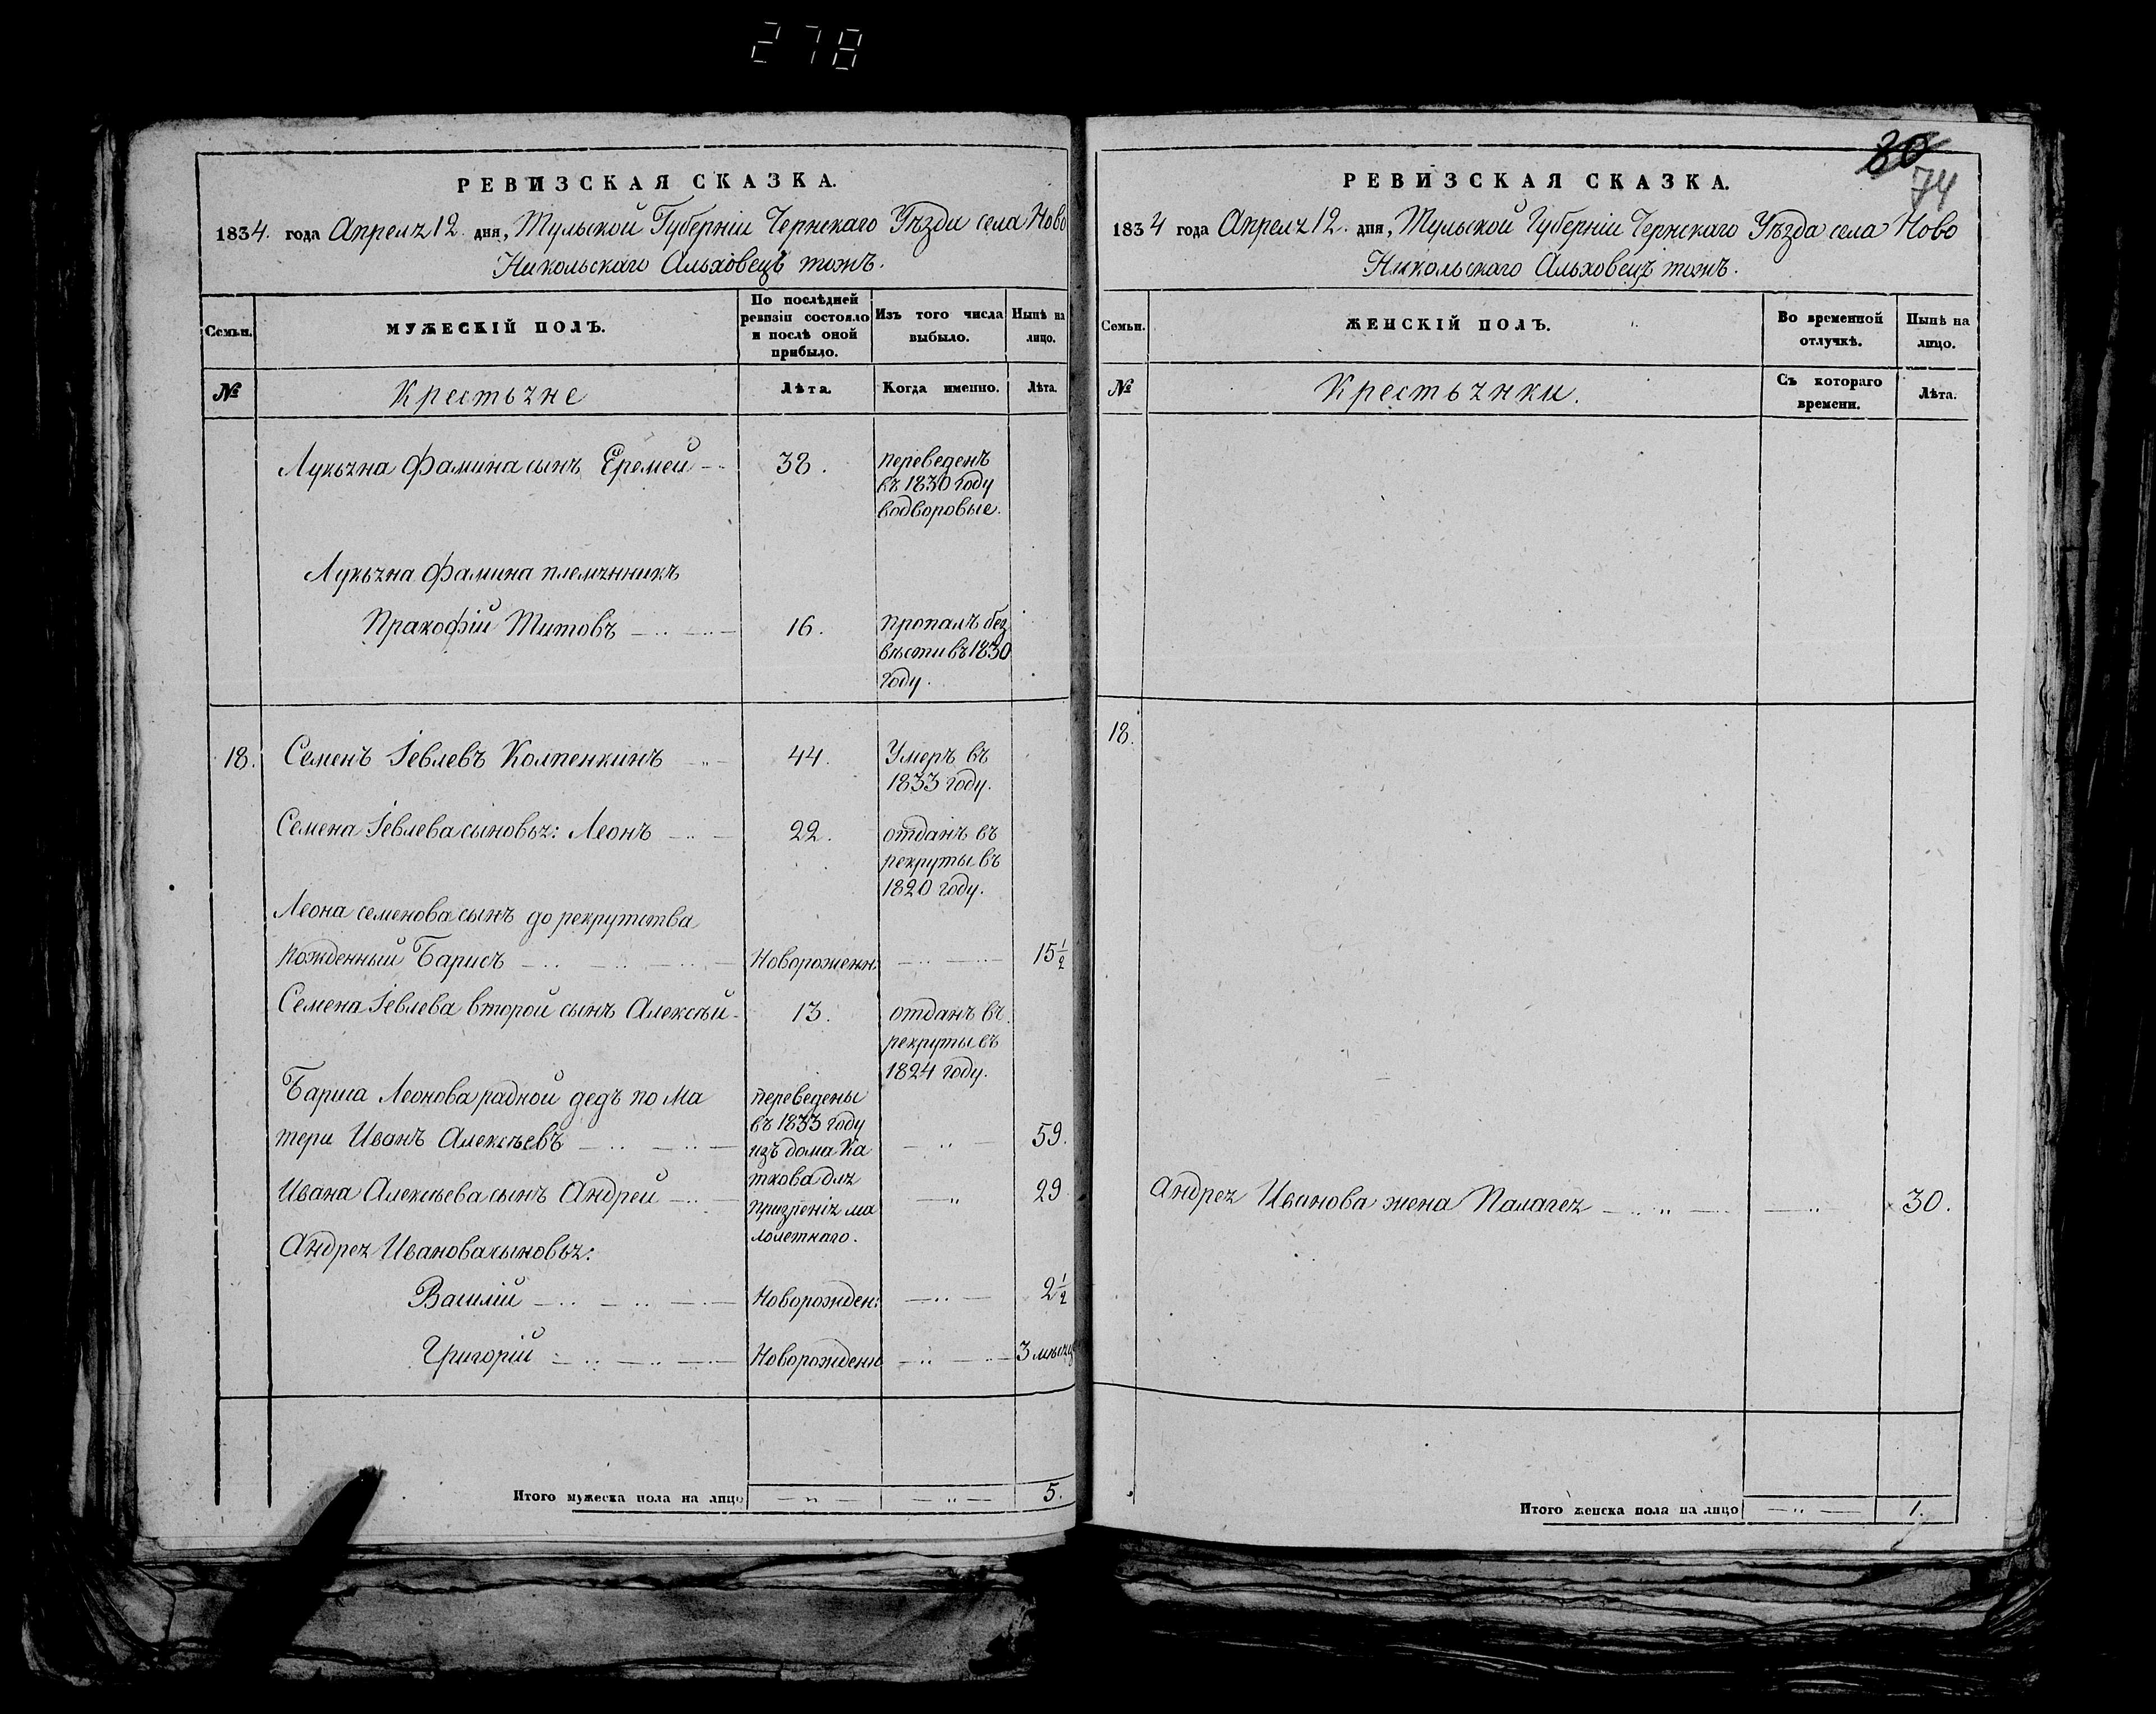 278
РЕВИЗСКАЯ СКАЗКА.
1834. года Апреля 12. дня, Тульской Губерніи Чернскаго Уѣзда села Ново
Никольскаго Альховецъ тожъ.
Семьи.
МУЖЕСКІЙ ПОЛЪ.
По послѣдней
ревизіи состояло
и послѣ оной
прибыло.
Изъ того числа
выбыло.
Нынѣ на
лицо.
№
Крестьяне
Лѣта.
Когда именно.
Лѣта.
Лукьяна Фамина сынъ Еремей
38.
переведенъ
въ 1830 году
водворовые.
Лукьяна Фамина племянникъ
Пракофій Титовъ
16.
пропалъ без
вѣсти въ 1830
году.
18.
Семенъ Іевлевъ Колпенкинъ
44.
Умеръ въ
1833 году.
Семена Іевлева сыновья: Леонъ
22.
отданъ въ
рекруты въ
1820 году.
Леона семенова сынъ до рекрутства
рожденный Барисъ
Новороженн:
15 1/2
Семена Іевлева второй сынъ Алексѣй
13.
отданъ въ
рекруты въ
1824 году.
Бариса Леонова радной дедъ по Ма
тери Иванъ Алексѣевъ
переведены
въ 1833 году
изъ дома Ка
ткова для
призренія ма
лолетнаго.
59.
Ивана Алексѣева сынъ Андрей
29
Андрея Иванова сыновья:
Василій
Новорожден:
2 1/2
Григорій
Новорожденн
3 мѣсяц
Итого мужеска пола на лицо
5.
80
74
РЕВИЗСКАЯ СКАЗКА.
1834 года Апреля 12. дня, Тульской Губерніи Чернскаго Уѣзда села Ново
Никольскаго Альховецъ тожъ.
Семьи.
ЖЕНСКІЙ ПОЛЪ.
Во временной
отлучкѣ.
Нынѣ на
лицо.
№
Крестьянки.
Съ котораго
времени.
Лѣта.
18.
Андрея Иванова жена Палагея
30.
Итого женска пола на лицо
1.